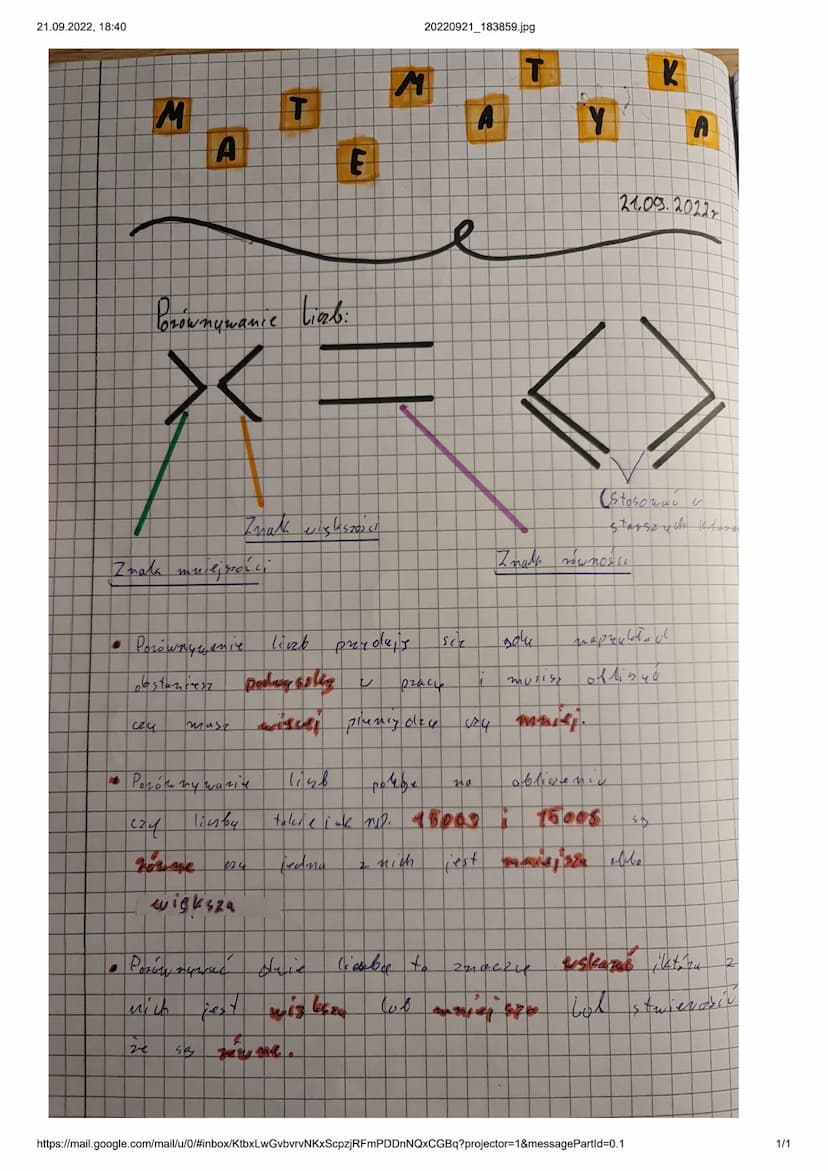 21.09.2022, 18:40 20220921_183859.jpg
MATEMATYKA
21.09.2022r
Porównywanie liczb:
> < =
(Stosować w
starszych
Znak większości
Znak mniejszości
Znak równości
• Porównywanie liczb przydaję się gdy naprzykład
dostaniesz podwyszkę w pracy i musisz obliszyć
czy masz więcej pieniędzy czy mniej.
• Porównywanie liczb polega na obliczeniu
czy liczby takie jak np. i są
równe czy jedna z nich jest mniejsza albo
większa
• Porównywać dwie liczby to znaczy wskazać która z
nich jest większa lub mniejsza lub stwierdzić
że są równe.
https://mail.google.com/mail/u/0/#inbox/KtbxLwGvbvrvNKxScpzjRFmPDDnNQxCGBq?projector=1&messagePartId=0.1 1/1